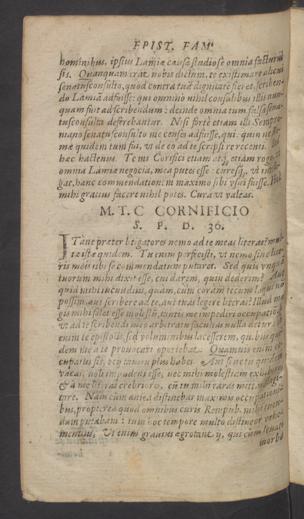 EPIST. FAM.
hominibus, ipsius Lamiæ causa studiose omnia facturus
sis. Quanquam erat nobis dictum, te existimare alicui
senatusconsulto, quod contra tuam dignitatem fieret, scriben-
do Lamiam adfuisse: qui omnino nihil consulibus illis nun-
quam fuit ad scribendum: deinde omnia tum falsa sena-
tusconsulta deferebantur. Nisi forte etiam illi Sempro-
niano senatusconsulto me censes adfuisse, qui ne Ro-
mæ quidem tum fui, ut de eo ad te scripsi re recenti. Sed
hæc hactenus. Te mi Cornifici etiam atque etiam rogo, ut
omnia Lamiæ negocia, mea putes esse: curesque, ut intelli-
gat, hanc commendationem maximo sibi usui fuisse. Hoc
mihi gratius facere nihil potes. Cura ut valeas.
M. T. C CORNIFICIO
S. P. D. 30.
ITane præter litigatores nemo ad te meas literas?
istæ quidem. Tu enim perfecisti, ut nemo sine literis
meis tibi se commendatum putaret. Sed quis unquam
tuorum mihi dixit esse, cui darem, quin dederim?
quid mihi iucundius, quam, cum coram tecum loqui non
possim, aut scribere ad te, aut tuas legere literas? Illud ma-
gis mihi solet esse molestum, tantis me impediri occupationibus
ut ad te scribendi meo arbitratu facultas nulla detur.
enim te epistolis, sed voluminibus lacesserem, quibus qui-
dem me a te provocari oportebat. Quamvis enim oc-
cupatus sis, ocii tamen plus habes. Aut si ne tu quidem
vacas, noli impudens esse, nec mihi molestiam exhibere,
& a me literas crebriores, cum tu mihi raras mittas,
Nam cum antea distinebar maximis occupationi-
bus, propterea quod omnibus curis Rempub. mihi tuen-
dam putabam: tum hoc tempore multo distineor vehe-
mentius, Ut enim gravius ægrotant ii, qui cum levati
morbo